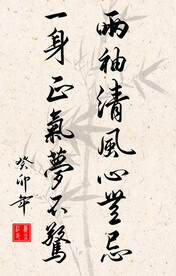 兩袖清風心無忌
一身正氣夢不驚
癸卯年